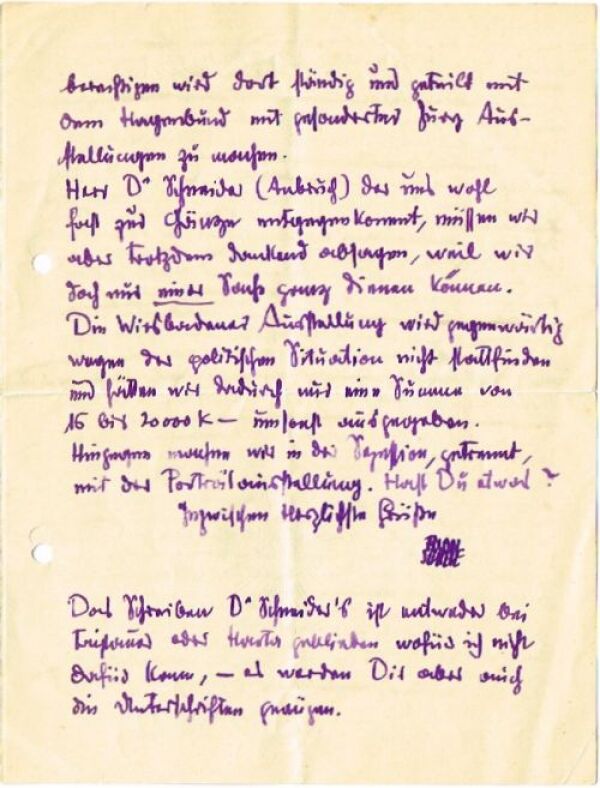 berechtigen wird dort ständig und geteilt mit
dem Hagenbund mit gesonderter Jury Aus-
stellungen zu machen.
Herr Dr Schneider (Anbruch) der uns wohl
fast zur Gänze entgegenkommt, müssen wir
aber trotzdem dankend absagen, weil wir
doch nur einer Sache ganz dienen können.
Die Wiesbadener Ausstellung wird gegenwärtig
wegen der politischen Situation nicht stattfinden
und hätten wir dadurch nur eine Summe von
16 bis 20000 K — umsonst ausgegeben.
Hingegen machen wir in der Sezession, getrennt,
mit der Porträtausstellung. Hast Du etwas?
Inzwischen herzlichste Grüße
Das Schreiben Dr Schneider's ist entweder bei
oder Harta geblieben wofür ich nicht
dafür kann, — es werden Dir aber auch
die Unterschriften genügen.